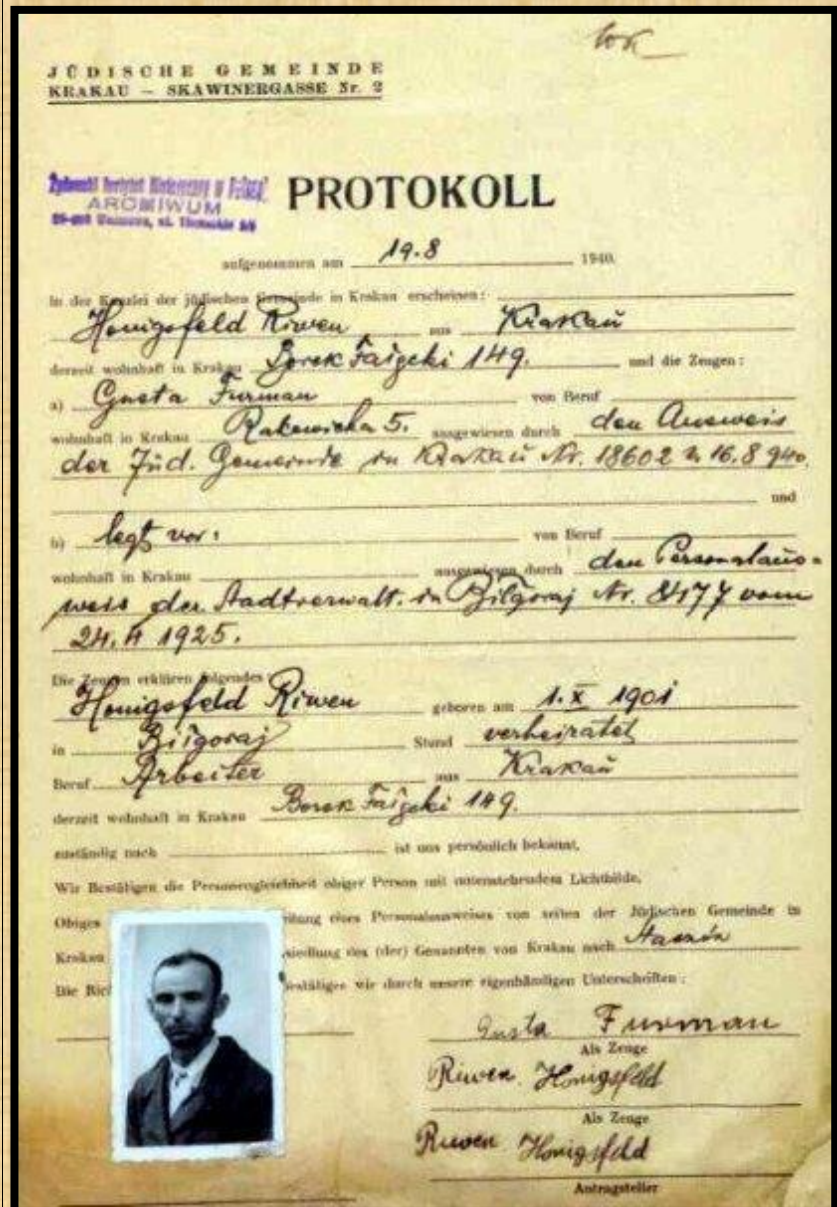 JÜDISCHE GEMEINDE
KRAKAU – SKAWINERGASSE Nr. 2
Żydowski Instytut Historyczny w Polsce
ARCHIWUM
PROTOKOLL
aufgenommen am 19.8 1940.
In der Kanzlei der jüdischen Gemeinde in Krakau erscheinen:
Honigsfeld Riwen aus Krakau
derzeit wohnhaft in Krakau Borek Fałęcki 149. und die Zeugen:
a) Gusta Furman von Beruf
wohnhaft in Krakau Rakowicka 5. ausgewiesen durch den Ausweis
der Jüd. Gemeinde in Krakau Nr. 18602 v. 16.8 940.
und
b) legt vor: von Beruf
wohnhaft in Krakau ausgewiesen durch den Personalaus-
weis der Stadtverwalt. in Biłgoraj Nr. vom
24. 1925.
Die Zeugen erklären folgendes:
Honigsfeld Riwen geboren am 1. X 1901
in Biłgoraj Stand verheiratet
Beruf Arbeiter aus Krakau
derzeit wohnhaft in Krakau Borek Fałęcki 149.
zuständig nach ist uns persönlich bekannt.
Wir Bestätigen die Personengleichheit obiger Person mit untenstehendem Lichtbilde.
Obiges eines Personalausweises von seiten der Jüdischen Gemeinde in
Krakau des (der) Genannten von Krakau nach
Die bestätigen wir durch unsere eigenhändigen Unterschriften:
Gusta Furman
Als Zeuge
Riwen Honigsfeld
Als Zeuge
Riwen Honigsfeld
Antragsteller